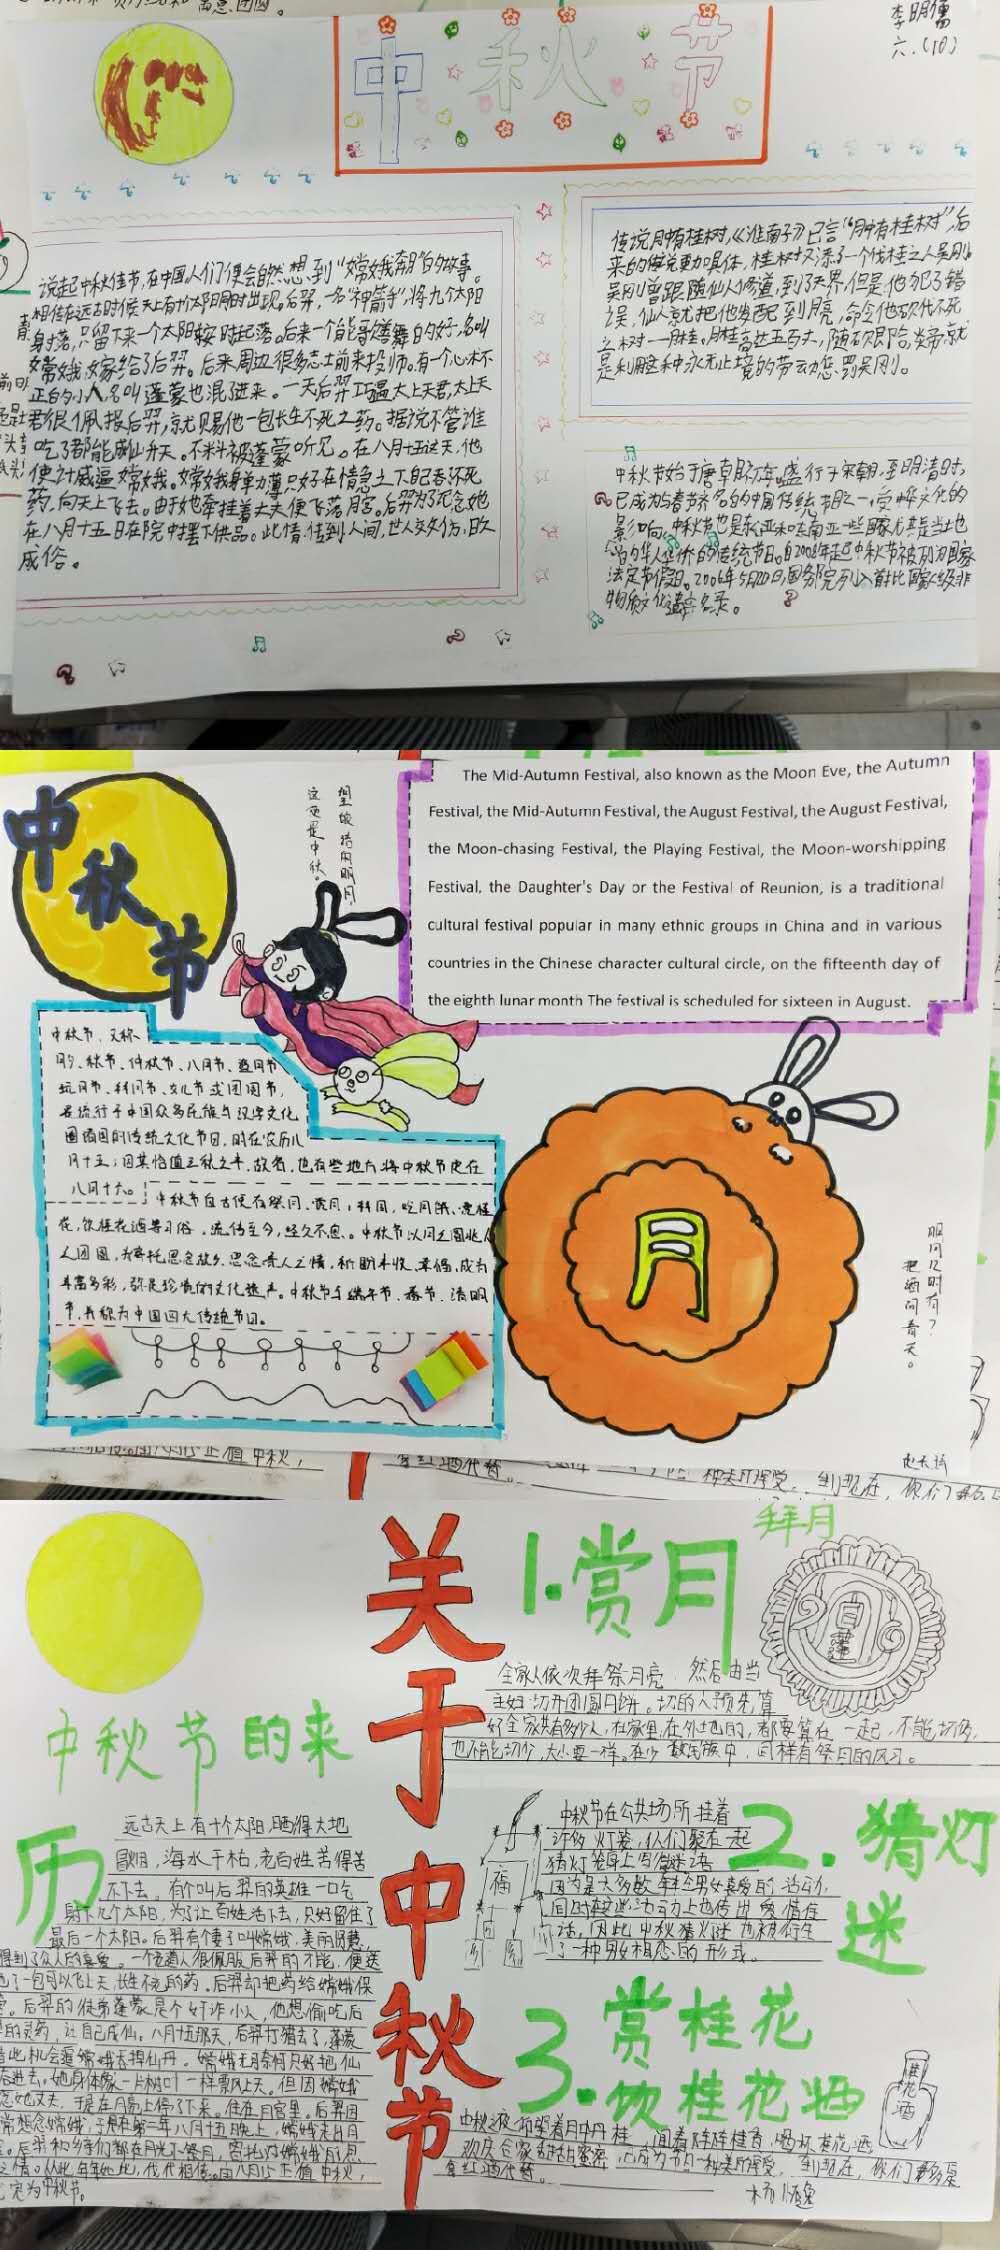 李明儒
六.(10)
中秋节
说起中秋佳节,在中国人们便会自然想到“嫦娥奔月”的故事。
相传在远古时候天上有十个太阳同时出现,后羿,一名“神箭手”,将九个太阳
射落,只留下来一个太阳按时起落。后来一个能歌善舞的好,名叫
嫦娥,嫁给了后羿。后来周边很多志士前来投师。有一个心术不
正的小人,名叫蓬蒙也混了进来。一天后羿巧遇太上天君,太上天
君很佩报后羿,就赐他一包长生不死之药。据说不管谁
吃了都能成仙升天。不料被蓬蒙听见。在八月十五这天,他
使计威逼嫦娥。嫦娥身单力薄只好在情急之下自己吞下死
药,向天上飞去。由于她牵挂着丈夫便飞落月宫。后羿为了纪念她
在八月十五日在院中摆下供品。此情传到人间,世人效仿,日久
成俗。
传说月中有桂树,《淮南子》已言“月中有桂树”,后
来的传说更加具体,桂树下又添了一个伐桂之人吴刚。
吴刚曾跟随仙人修道,到了天界,但是他犯了错
误,仙人就把他发配到月亮,命令他砍伐不死
之树——月桂。月桂高达五百丈,随砍随合,炎帝就
是利用这种永无止境的劳动惩罚吴刚。
中秋节始于唐朝初年,盛行于宋朝,至明清时,
已成为与春节齐名的中国传统节日之一,受中华文化的
影响,中秋节也是东亚和东南亚一些国家尤其是当地
的华人华侨的传统节日。自2008年起中秋节被列为国家
法定节假日。2006年5月20日,国务院列入首批国家级非
物质文化遗产名录。
中秋节
望皎洁的明月,
这便是中秋。
The Mid-Autumn Festival, also known as the Moon Eve, the Autumn
Festival, the Mid-Autumn Festival, the August Festival, the August Festival,
the Moon-chasing Festival, the Playing Festival, the Moon-worshipping
Festival, the Daughter's Day or the Festival of Reunion, is a traditional
cultural festival popular in many ethnic groups in China and in various
countries in the Chinese character cultural circle, on the fifteenth day of
the eighth lunar month The festival is scheduled for sixteen in August.
中秋节,又称
月夕、秋节、仲秋节、八月节、追月节
玩月节、拜月节、女儿节或团圆节,
是流行于中国众多民族与汉字文化
圈诸国的传统文化节日,时在农历八
月十五;因其恰值三秋之半,故名,也有些地方将中秋节定在
八月十六。
中秋节自古便有祭月、赏月、拜月、吃月饼、赏桂
花、饮桂花酒等习俗,流传至今,经久不息。中秋节以月之圆兆人
之团圆,为寄托思念故乡,思念亲人之情,祈盼丰收、幸福,成为
丰富多彩,弥足珍贵的文化遗产。中秋节与端午节、春节、清明
节,并称为中国四大传统节日。
月
明月几时有?
把酒问青天。
关于中秋节
中秋节的来
历
远古天上有十个太阳,晒得大地
冒烟,海水干枯,老百姓苦得苦
不下去。有个叫后羿的英雄一口气
射下九个太阳,为了让百姓活下去,只好留住了
最后一个太阳。后羿有个妻子叫嫦娥,美丽贤慧,
得到了众人的喜爱。一个道人很佩服后羿的才能,便送
了一包可以飞上天,长生不老的药。后羿却把药给嫦娥保
。后羿的徒弟蓬蒙是个奸诈小人,他想偷吃后
的灵药,让自己成仙。八月十五那天,后羿打猎去了,蓬蒙
此机会逼嫦娥去掉仙丹。嫦娥无奈何只好把仙
吞进去,她身体像一片树叶一样飘上天。但因嫦娥
念她丈夫,于是在月亮上停了下来。住在月宫里。后羿因
常想念嫦娥,于是在第二年八月十五晚上,嫦娥走出月
。后羿和乡亲们都在月光下祭月,寄托对嫦娥的思
之情。从此年年如此,代代相传。由八月15正值中秋,
定为中秋节。
1.赏月
拜月
白莲
全家人依次拜祭月亮,然后由当
主妇切开团圆月饼。切的人预先算
好全家共有多少人,在家里,在外地的,都要算在一起,不能切多,
也不能切少,大小要一样。在少数民族中,同样有祭月的风习。
2.猜灯
迷
福
中秋节在公共场所挂着
许多灯笼,人们聚在一起
猜灯笼身上写的谜语
因为是大多数年轻男女喜爱的活动,
同时在这些活动上也传出爱情佳
话,因此中秋猜灯迷也被衍生
了一种男女相恋的形式。
3.赏桂花
饮桂花酒
桂花酒
中秋之夜,仰望着月中丹桂,闻着阵阵桂香,喝杯桂花酒
欢庆合家甜甜蜜蜜,已成为节日一种美的享受,到现在,你们更多是
拿红酒代替。